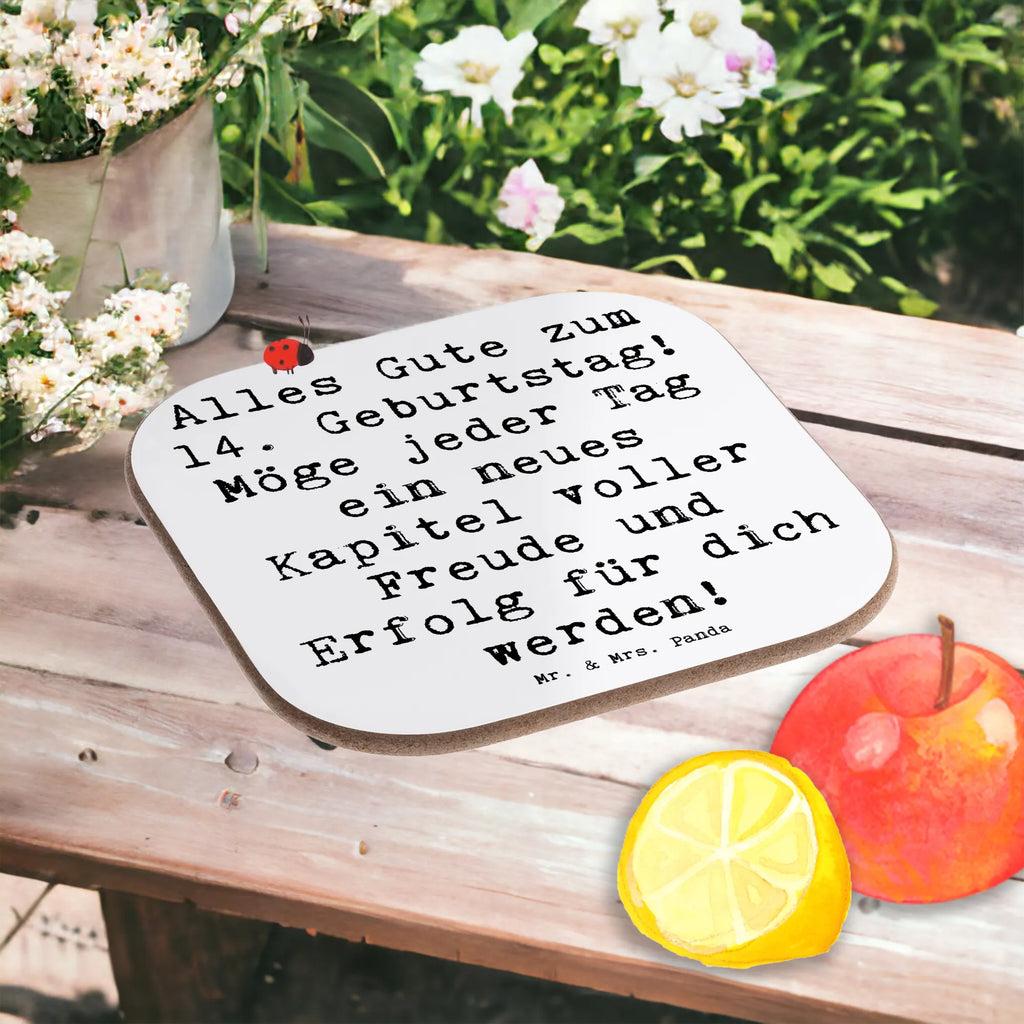 Alles Gute zum
14. Geburtstag!
Möge jeder Tag
ein neues
Kapitel voller
Freude und
Erfolg für dich
werden!
Mr. & Mrs. Panda